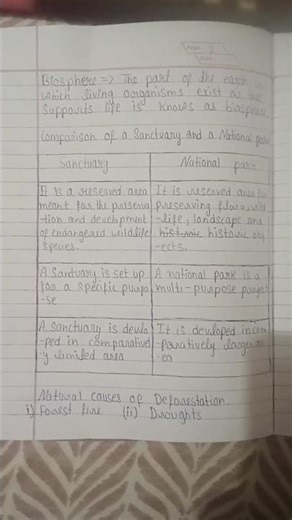 Biosphere => The part of the earth in
which living organisms exist or that
supports life is knows as biosphere
Comparison of a Sanctuary and a National park
Sanctuary
National park
It is a reserved area
meant for the preserva
-tion and development
of endangered wildlife
species.
It is reserved area for
preserving flora, wild
-life, landscape and
historic historic obj
-ects.
A Sanctuary is set up
for a specific purpo
-se
A national park is a
multi-purpose project
A sanctuary is develo
-ped in comparativel
-y limited area
It is developed in com
-paratively larger ar
-ea
Natural causes of Deforestation.
i) Forest fire (ii) Droughts